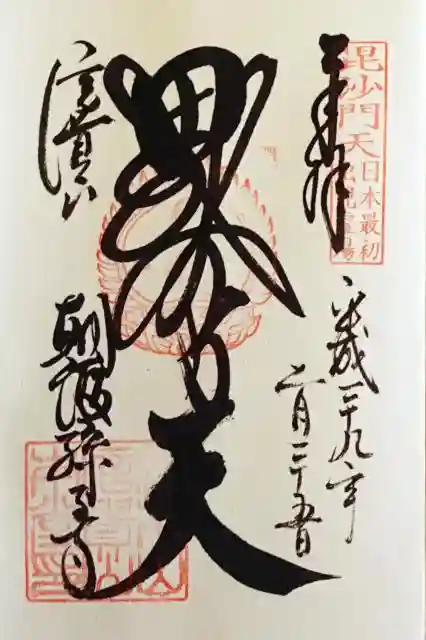 毘沙門天
日本最初
出現霊場
奉拝
平成二十九年
二月二十五日
毘沙門天
信貴山
朝護孫子寺